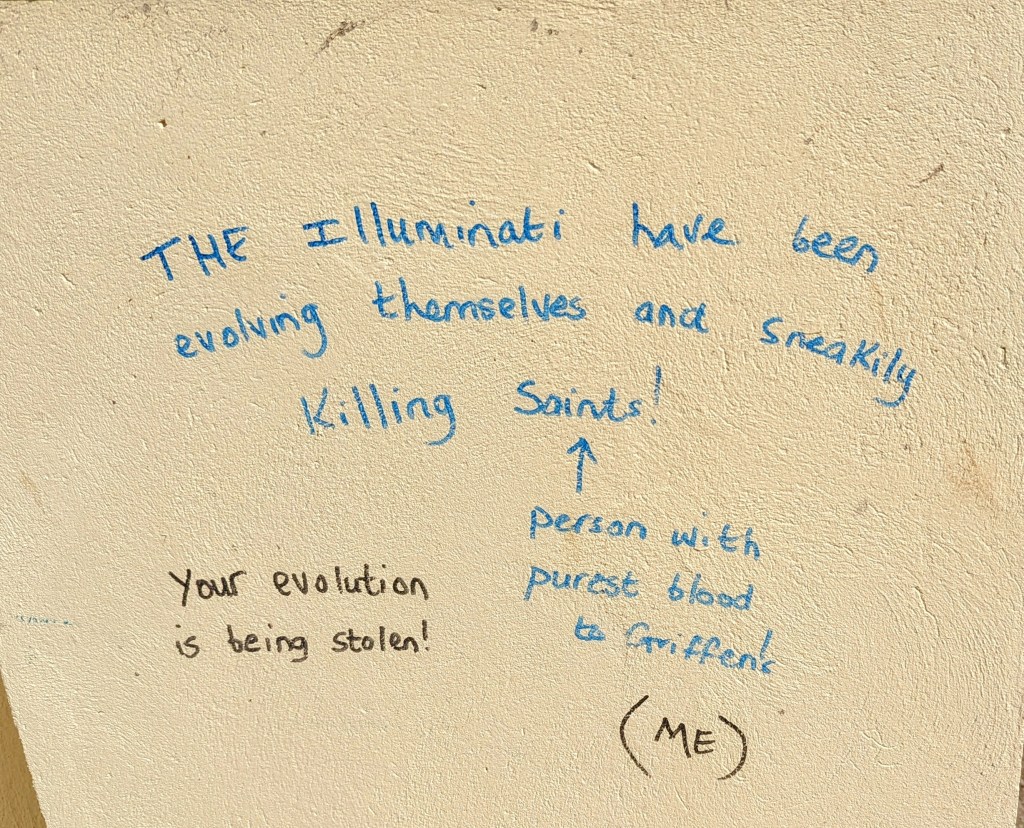 THE Illuminati have been
evolving themselves and sneakily
Killing Saints!
↑
person with
purest blood
to Griffen's!
Your evolution
is being stolen!
(ME)